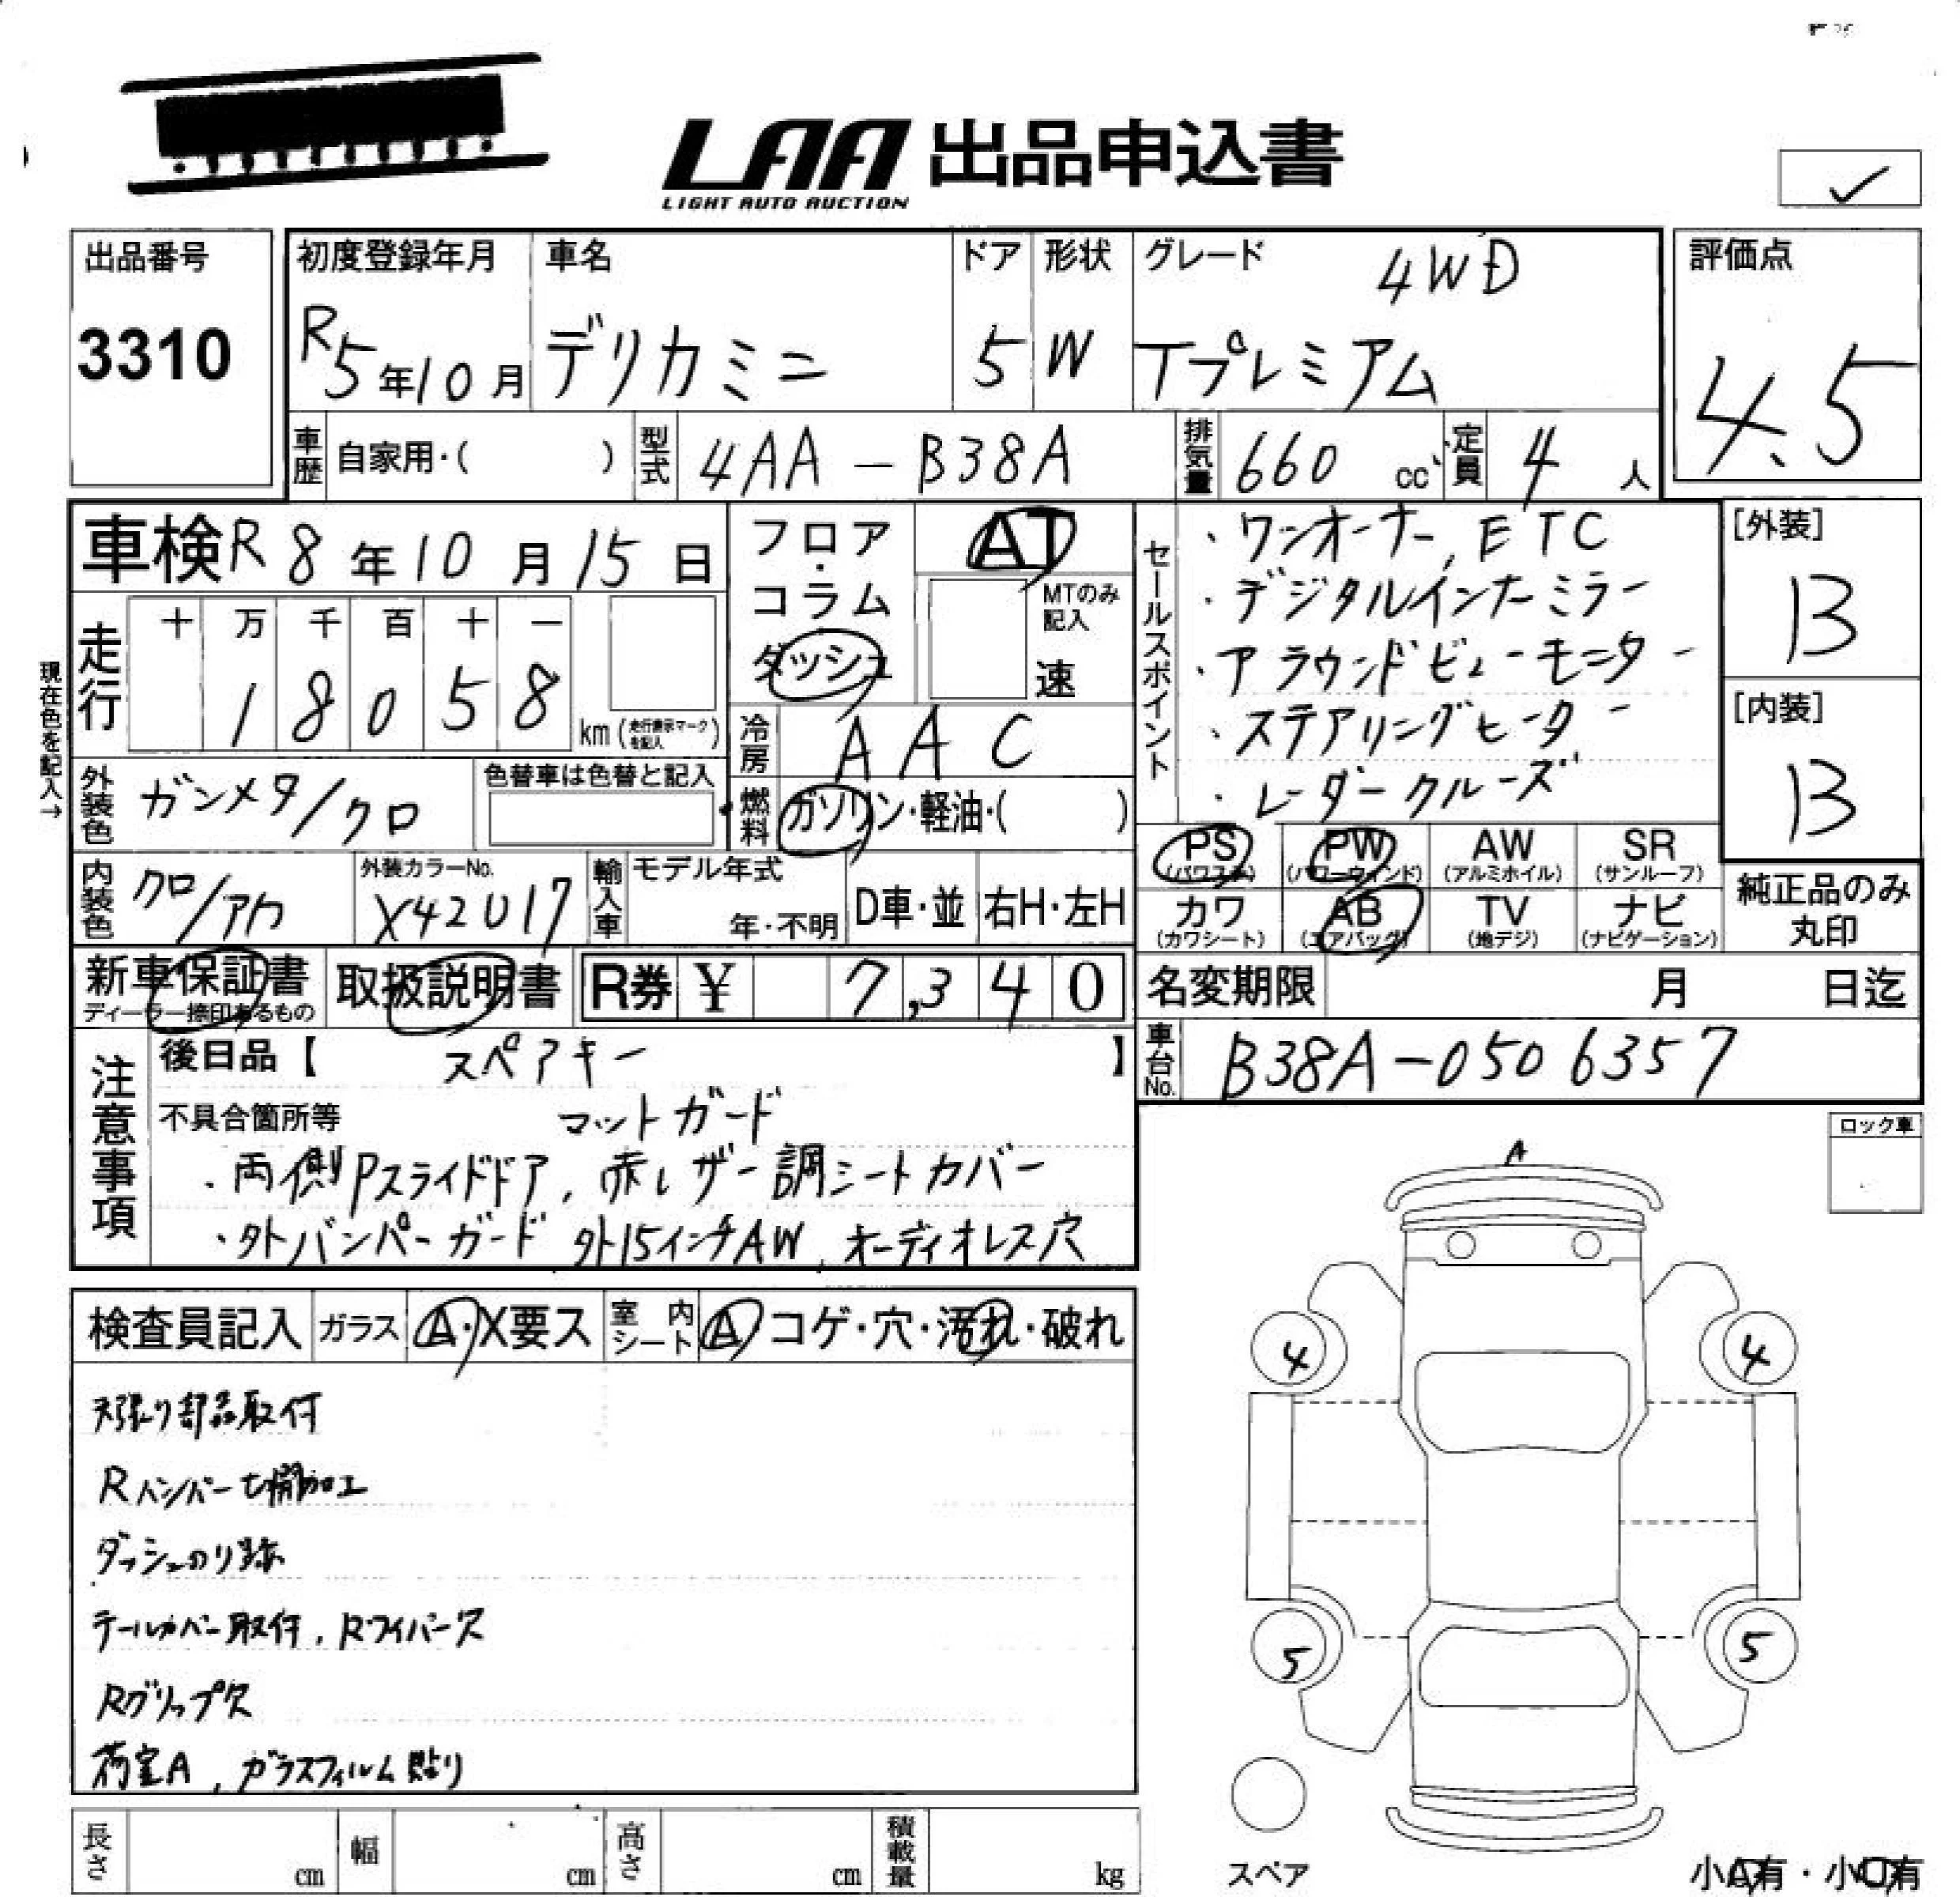 LAA 出品申込書
LIGHT AUTO AUCTION
出品番号
3310
初度登録年月
R5年10月
車名
デリカミニ
ドア
5
形状
W
グレード
4WD
Tプレミアム
評価点
4.5
車歴 自家用・( )
型式 4AA-B38A
排気量 660 cc
定員 4 人
車検 R8年10月15日
走行 十 万 千 百 十 一
18058 km(走行表示マークを記入)
現在色を記入→
外装色 ガンメタ/クロ
色替車は色替と記入
内装色 クロ/アカ
外装カラーNo.
X42U17
フロア・コラム
ダッシュ
AT
MTのみ記入
速
冷房 AAC
燃料 ガソリン・軽油・( )
輸入車 モデル年式
年・不明
D車・並 右H・左H
セールスポイント
・ワンオーナー, ETC
・デジタルインナーミラー
・アラウンドビューモニター
・ステアリングヒーター
・レーダークルーズ
[外装]
B
[内装]
B
PS PW AW SR
(パワステ) (パワーウィンド) (アルミホイル) (サンルーフ)
カワ AB TV ナビ
(カワシート) (エアバッグ) (地デジ) (ナビゲーション)
純正品のみ
丸印
新車保証書
ディーラー捺印あるもの
取扱説明書
R券 ¥ 7,340
名変期限 月 日迄
車台No. B38A-0506357
注意事項
後日品【 スペアキー 】
不具合箇所等 マットガード
・両側Pスライドドア, 赤レザー調シートカバー
・外バンパーガード 外15インチAW, オーディオレス穴
ロック車
検査員記入 ガラス A・X要ス 室内シート A コゲ・穴・汚れ・破れ
天張り部品取付
Rバンパー切開加工
ダッシュのり跡
テールカバー取付, Rワイパー欠
Rグリップ欠
荷室A, ガラスフィルム貼り
A
4 4
5 5
スペア
長さ cm 幅 cm 高さ cm 積載量 kg
小A有・小U有